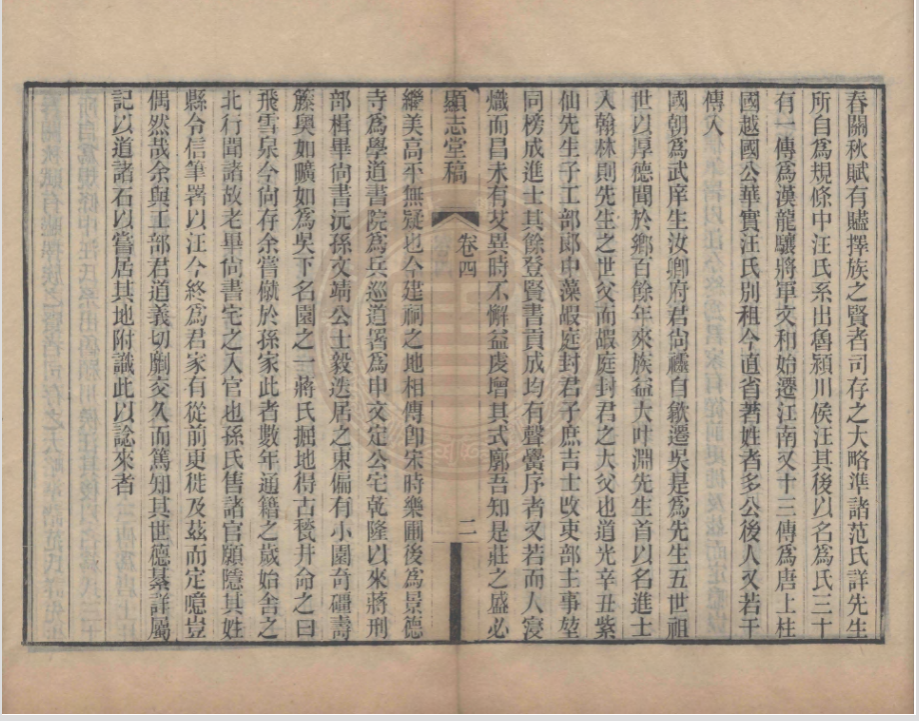 春關秋賦有贐擇族之賢者司存之大略準諸范氏詳先生
所自爲規條中汪氏系出魯潁川侯汪其後以名爲氏三十
有一傳爲漢龍驤將軍文和始遷江南又十三傳爲唐上柱
國越國公華實汪氏別祖今直省著姓者多公後人又若干
傳入
國朝爲武庠生汝卿府君尙䙰自歙遷吳是爲先生五世祖
世以厚德聞於鄉百餘年來族益大叶淵先生首以名進士
入翰林則先生之世父而嘏庭封君之大父也道光辛丑紫
仙先生子工部郎中藻嘏庭封君子庶吉士改吏部主事堃
同榜成進士其餘登賢書貢成均有聲黌序者又若而人寖
熾而昌未有艾異時不懈益虔增其式廓吾知是莊之盛必
顯志堂稿 卷四 二
繼美高平無疑也今建祠之地相傳卽宋時樂圃後爲景德
寺爲學道書院爲兵巡道署爲申文定公宅乾隆以來蔣刑
部楫畢尙書沅孫文靖公士毅迭居之東偏有小園奇礓壽
籐奧如曠如爲吳下名園之一蔣氏掘地得古甃井命之曰
飛雪泉今尙存余嘗僦於孫家此者數年通籍之歲始舍之
北行聞諸故老畢尙書宅之入官也孫氏售諸官願隱其姓
縣令信筆署以汪今終爲君家有從前更徙及茲而定噫豈
偶然哉余與工部君道義切劘交久而篤知其世德綦詳屬
記以道諸石以嘗居其地附識此以諗來者